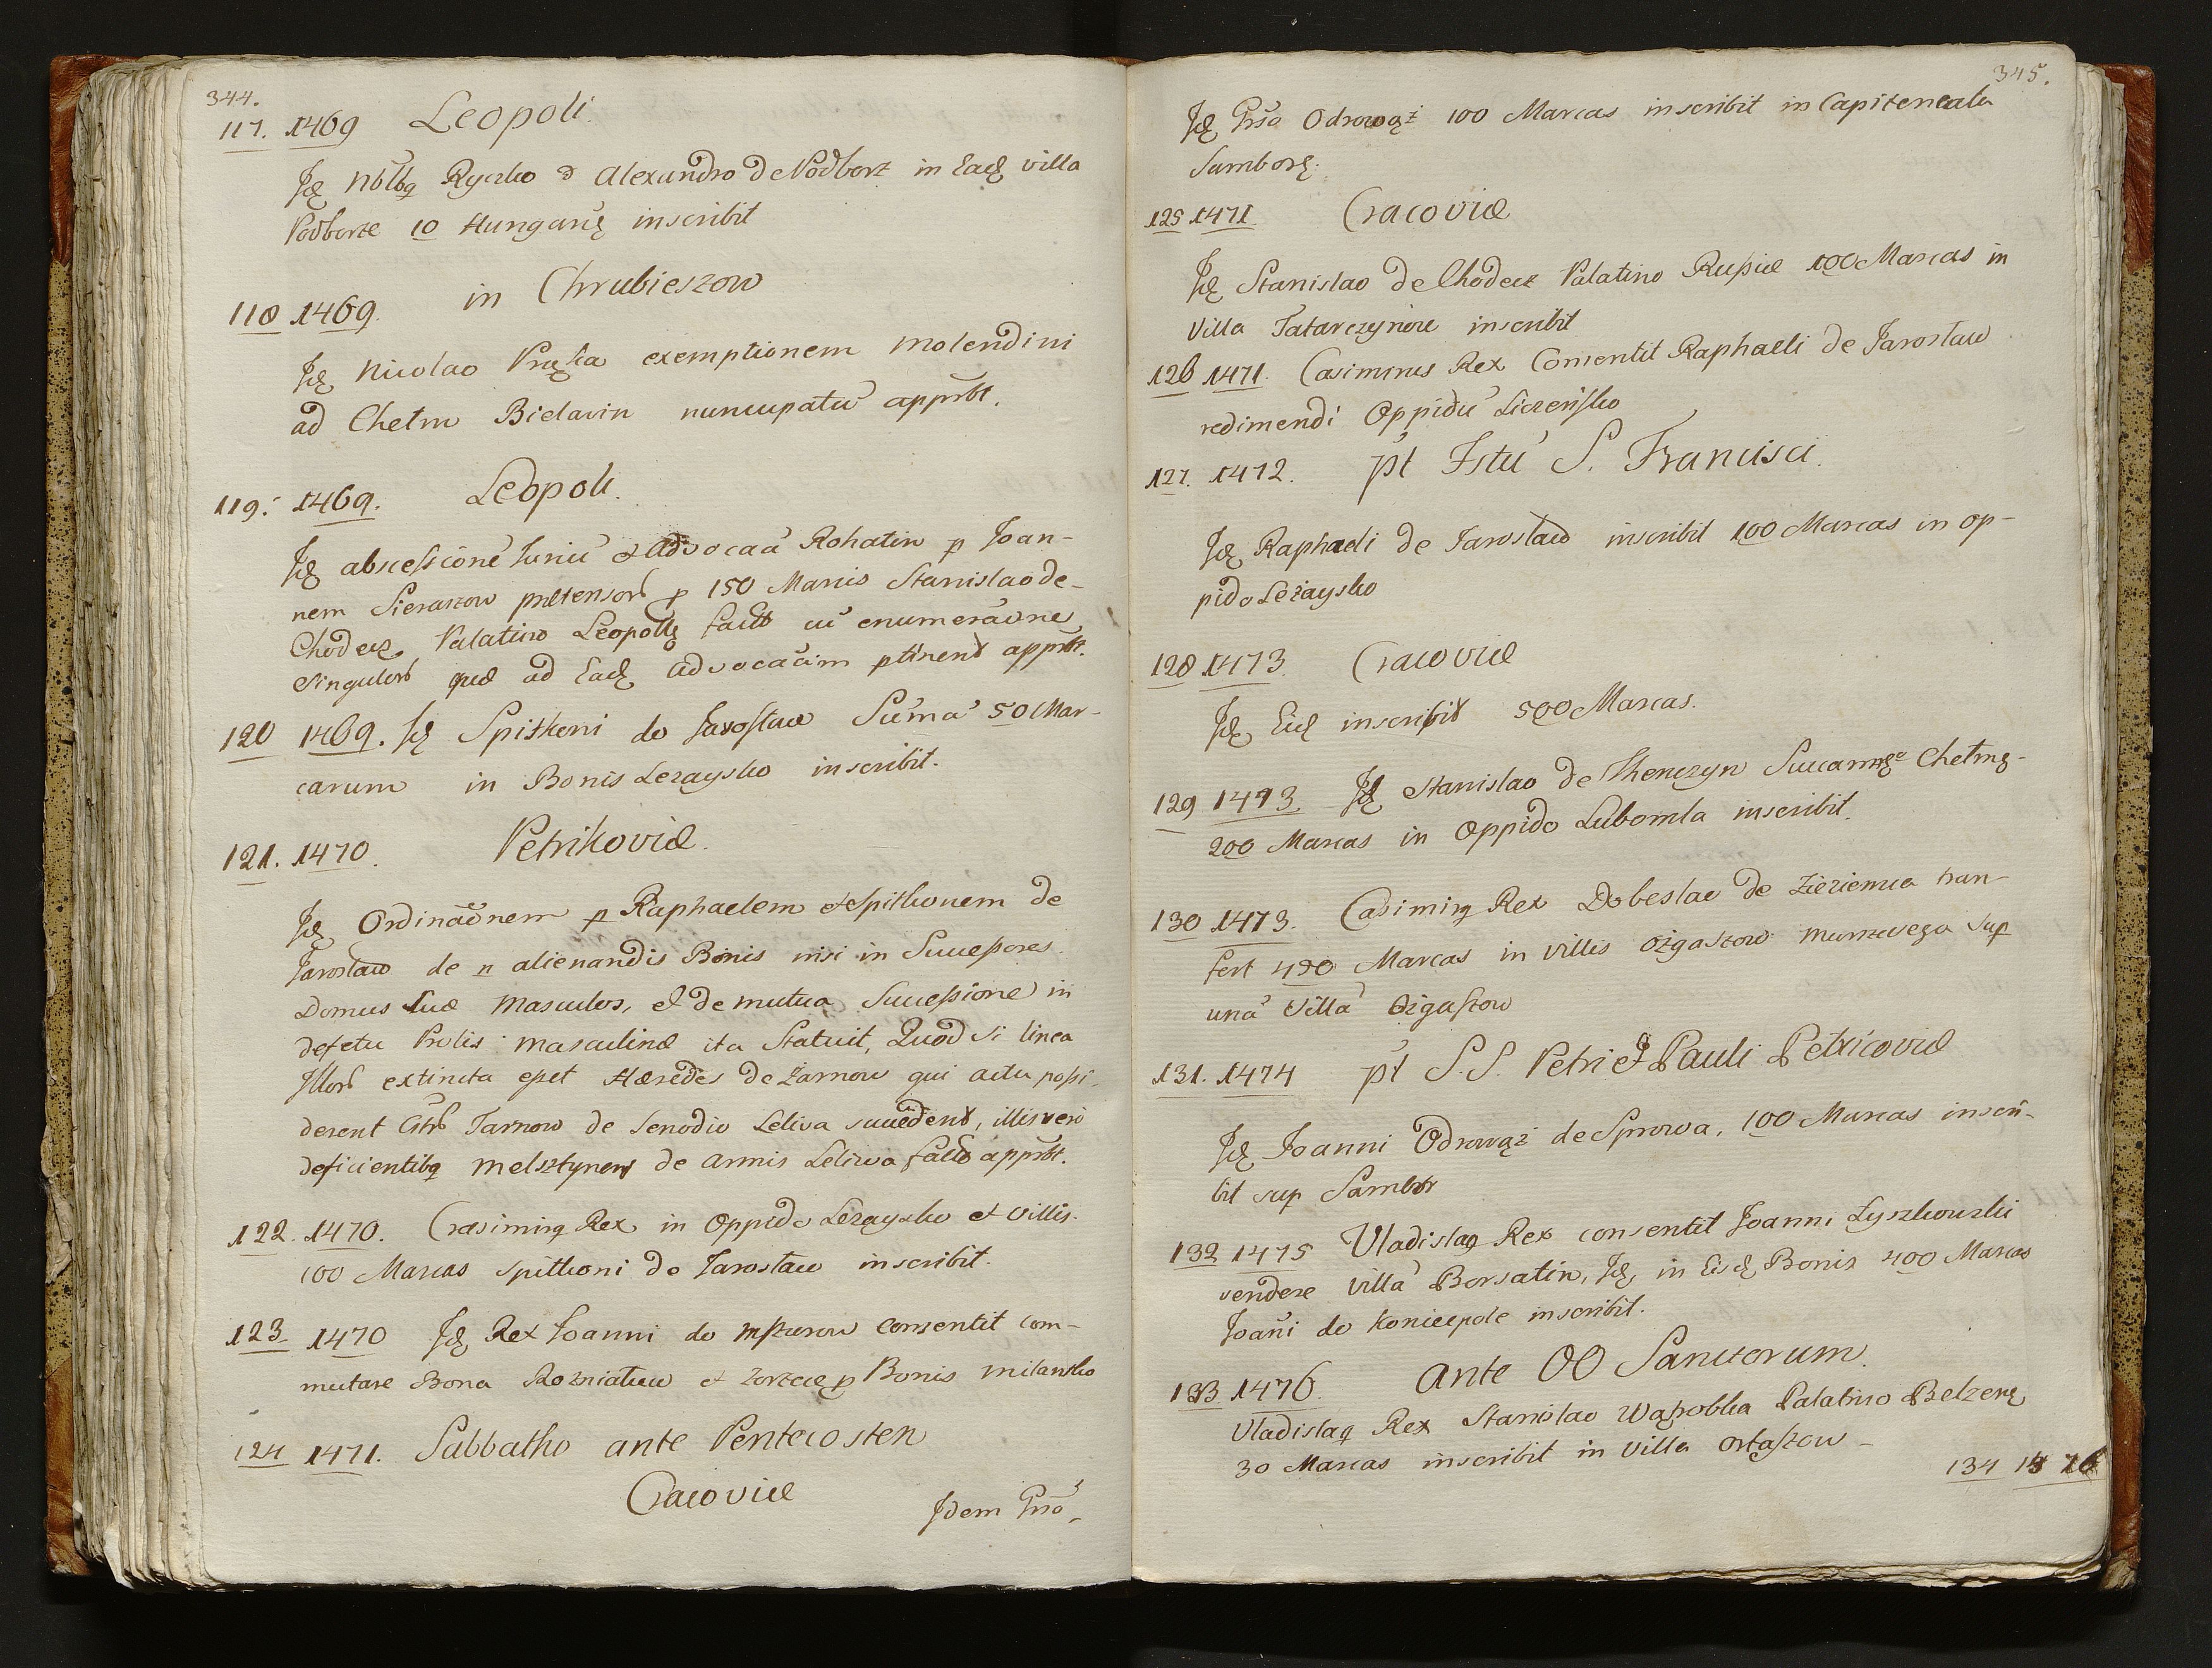 344.
117. 1469 Leopoli.
Jdę Nblbq Ryczko & Alexandro de Podborz in Eadę villa
Podborze 10 Hungarię inscribit
118 1469. in Chrubieszow
Jdę Nicolao exemptionem molendini
ad Chełm Bielavin nuncupatū apprbt.
119. 1469. Leopoli.
Jdę abscessionē Juriū & advocaā Rohatin p Joan-
nem Sieraszow p 150 Marcis Stanislao de
Chodecz Palatino Leopol factā cū enumeraōne
singulor quæ ad Eadę advocaāim ptinent apprbt.
120 1469. Jdę Spitkoni de Jarosław Sūmā 50 Mar-
carum in Bonis Lezaysko inscribit.
121. 1470. Petrikoviæ.
Jdę Ordinaōnem p Raphaelem et Spitkonem de
Jarosław de n alienandis Bonis nisi in Sucessores
Domus suæ masculos, et de mutua Sucessione in
defetu Prolis masculinæ ita Statuit, Quod si linea
Illor extincta esset Hæredes de Żarnow qui actu possi-
derent Tarnow de Senodio Leliva sucedent, illis vero
deficientibq Melsztynens de Armis Leliwa apprbt.
122. 1470. Casimirq Rex in Oppido Lezaysko et villis
100 Marcas Spitkoni de Jarosław inscribit.
123 1470 Jdę Rex Joanni de consentit com-
mutare Bona Rozniatow et p Bonis
124 1471. Sabbatho ante Pentecosten
Cracoviæ
Jdem
345.
Jdę Odrowąż 100 Marcas inscribit in Capitenealu
Samborę.
125 1471. Cracoviæ
Jdę Stanislao de Chodecz Palatino Russiæ 100 Marcas in
Villa inscribit
126 1471. Casimirus Rex Consentit Raphaeli de Jarosław
redimendi Oppidū
127. 1472. pt Fstū S. Francisci.
Jdę Raphaeli de Jarosław inscribit 100 Marcas in op-
pido Leżaysko
128 1473. Cracoviæ
Jdę Eidę inscribit 500 Marcas.
129 1473. Jdę Stanislao de Thenczyn Chełmę-
200 Marcas in Oppido Lubomla inscribit.
130 1473. Casimirq Rex Dobeslao de tran-
fert Marcas in villis Ożgaszow sup
unā Villā Ożgaszow
131. 1474 pt S.S. Petri & Pauli Petricoviæ
Jdę Joanni Odrowąż de Sprowa, 100 Marcas inscri-
bit sup Sambor
132 1475 Vladislaq Rex consentit Joanni Łyszkowski
vendere villā Borsatin, Jdę in Eisdę Bonis 400 Marcas
Joāni de Koniecpole inscribit.
133. 1476. Ante OO Sanctorum.
Vladislaq Rex Stanislao Palatino Belzenę
30 Marcas inscribit in villa Ostaszow
134 1476